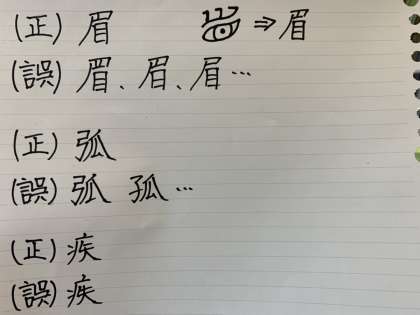 (正) 眉 ⇒ 眉
(誤) 眉、眉、眉…
(正) 弧
(誤) 弧 孤…
(正) 疾
(誤) 疾